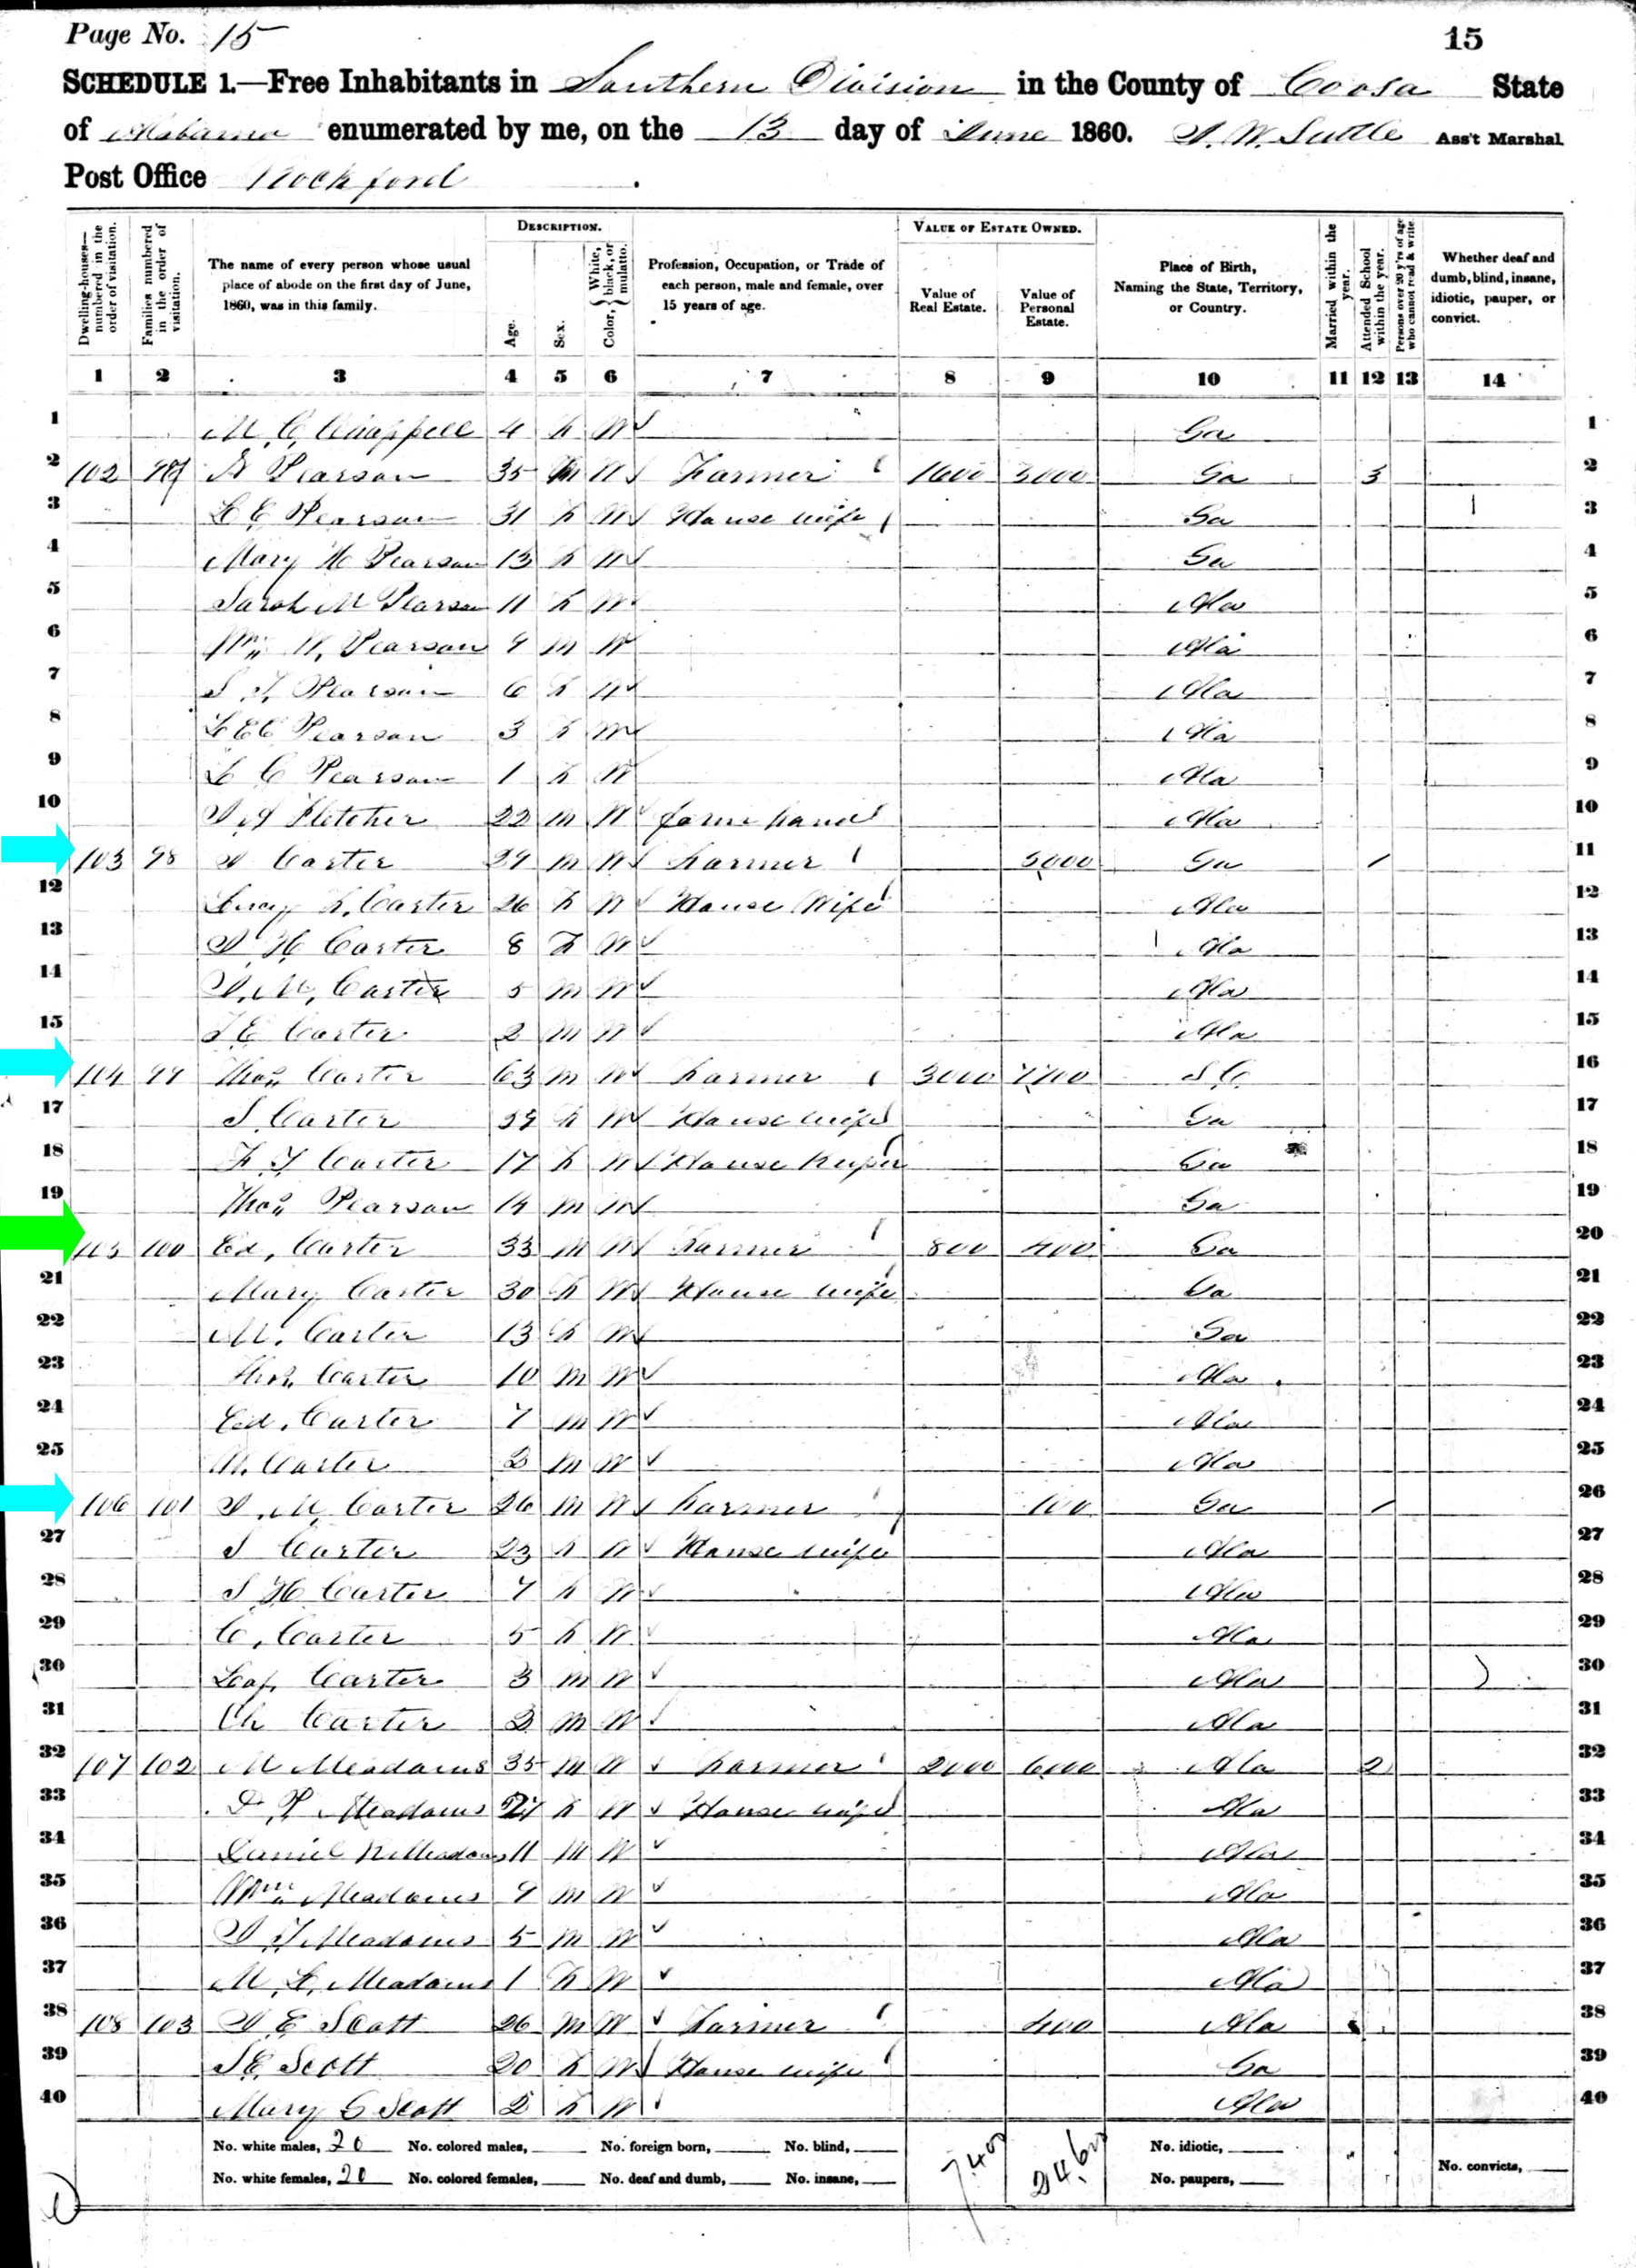 Page No. 15
15
SCHEDULE 1.—Free Inhabitants in Southern Division in the County of Coosa State
of Alabama enumerated by me, on the 13 day of June 1860. A. W. Suttle Ass't Marshal
Post Office Rockford
Dwelling-houses—numbered in the order of visitation.
Families numbered in the order of visitation.
The name of every person whose usual place of abode on the first day of June, 1860, was in this family.
DESCRIPTION.
Age.
Sex.
Color, { White, black, or mulatto.
Profession, Occupation, or Trade of each person, male and female, over 15 years of age.
VALUE OF ESTATE OWNED.
Value of Real Estate.
Value of Personal Estate.
Place of Birth, Naming the State, Territory, or Country.
Married within the year.
Attended School within the year.
Persons over 20 y'rs of age who cannot read & write.
Whether deaf and dumb, blind, insane, idiotic, pauper, or convict.
1 2 3 4 5 6 7 8 9 10 11 12 13 14
1 M. C. Chappell 4 f W Ga 1
2 102 97 Pearson 35 m W Farmer 1600 3000 Ga 3 2
3 Pearson 31 f W House wife Ga 3
4 Mary H Pearson 13 f W Ga 4
5 Sarah M Pearson 11 f W Ala 5
6 Wm W. Pearson 9 m W Ala 6
7 Pearson 6 f W Ala 7
8 Pearson 3 f W Ala 8
9 Pearson 1 f W Ala 9
10 Fletcher 22 m W farm hand Ala 10
11 103 98 Carter 29 m W Farmer 5000 Ga / 11
12 Carter 26 f W House Wife Ala 12
13 H Carter 8 f W Ala 13
14 M, Carter 5 m W Ala 14
15 Carter 2 m W Ala 15
16 104 99 Thos Carter 63 m W Farmer 3000 S C. 16
17 S Carter f W House wife Ga 17
18 Carter 17 f W House keeper Ga 18
19 Thos Pearson 14 m W Ga 19
20 105 100 Ed, Carter 33 m W Farmer 800 400 Ga 20
21 Mary Carter 30 f W House wife Ga 21
22 M. Carter 13 f W Ga 22
23 Thos. Carter 10 m W Ala 23
24 Ed, Carter 7 m W Ala 24
25 Carter m W Ala 25
26 106 101 M, Carter 26 m W Farmer 100 Ga / 26
27 S Carter 23 f W House wife Ala 27
28 S H Carter 7 f W Ala 28
29 C, Carter 5 f W Ala 29
30 Carter 3 m W Ala 30
31 Ch Carter m W Ala 31
32 107 102 M Meadows 35 m W Farmer 2000 6000 Ala 2 32
33 Meadows f W House wife Ala 33
34 Daniel Meadows 11 m W Ala 34
35 Wm Meadows 9 m W Ala 35
36 Meadows 5 m W Ala 36
37 M. Meadows 1 f W Ala 37
38 108 103 E Scott 26 m W Farmer 400 Ala 38
39 S E Scott 20 f W House wife Ga 39
40 Mary Scott 2 f W Ala 40
No. white males, 20 No. colored males, No. foreign born, No. blind, No. idiotic,
No. white females, 20 No. colored females, No. deaf and dumb, No. insane, No. paupers, No. convicts,